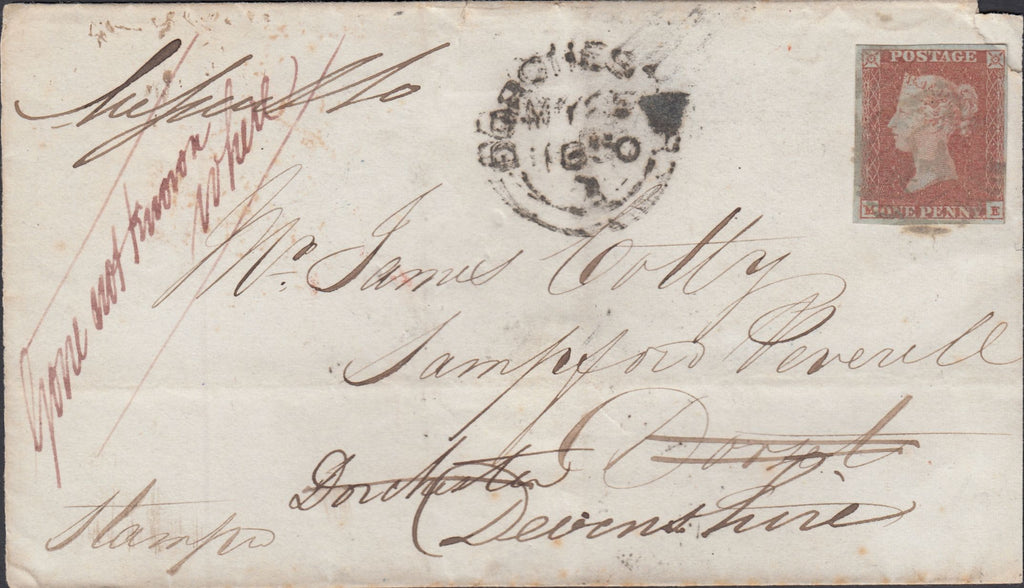 DORCHESTER
MY 25
1850
POSTAGE
ONE PENNY
M E
Gone not known
where
Mr. James Cotty
Sampford Peverell
Dorset
Dorchester
Devonshire
Stamps